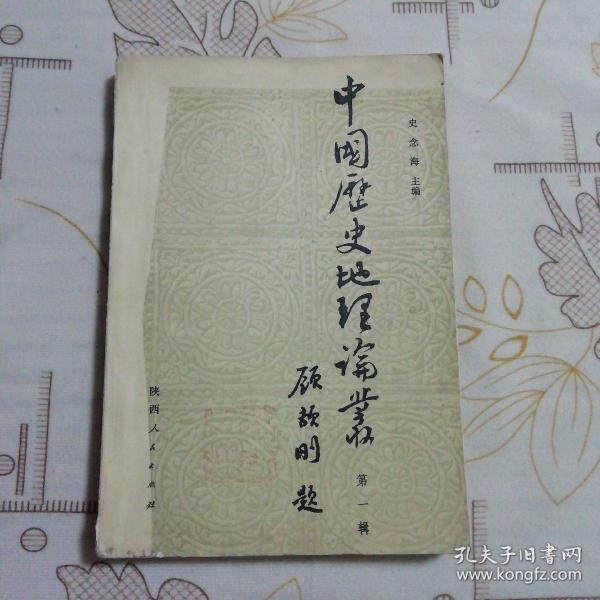 史念海 主编
中國歷史地理論叢
第一辑
顾颉刚 题
陕西人民出版社
孔夫子旧书网
www.kongfz.com